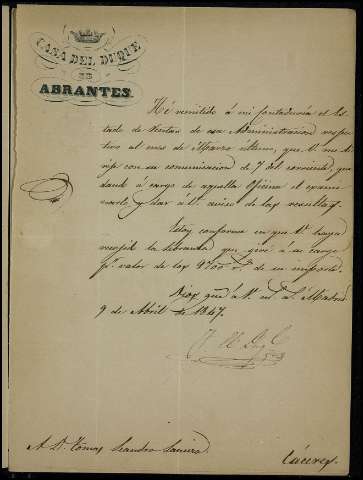 CASA DEL DUQUE
DE
ABRANTES.
Hé remitido á mi Contaduria el Es-
tado de Ventas de esa Administracion respec-
tivo al mes de Marzo último, que V. me di-
rije con su comunicacion de 7 del corriente, que-
dando á cargo de aquella Oficina el exami-
narle y dar á V. aviso de las resultas.
Estoy conforme en que V. haya
recojido la libranza que giré á su cargo
pr. valor de los de su importe.
Dios gue. á V. ms. as. Madrid
9 de Abril de 1847.
A Dn. Tomas Leandro
Cáceres.